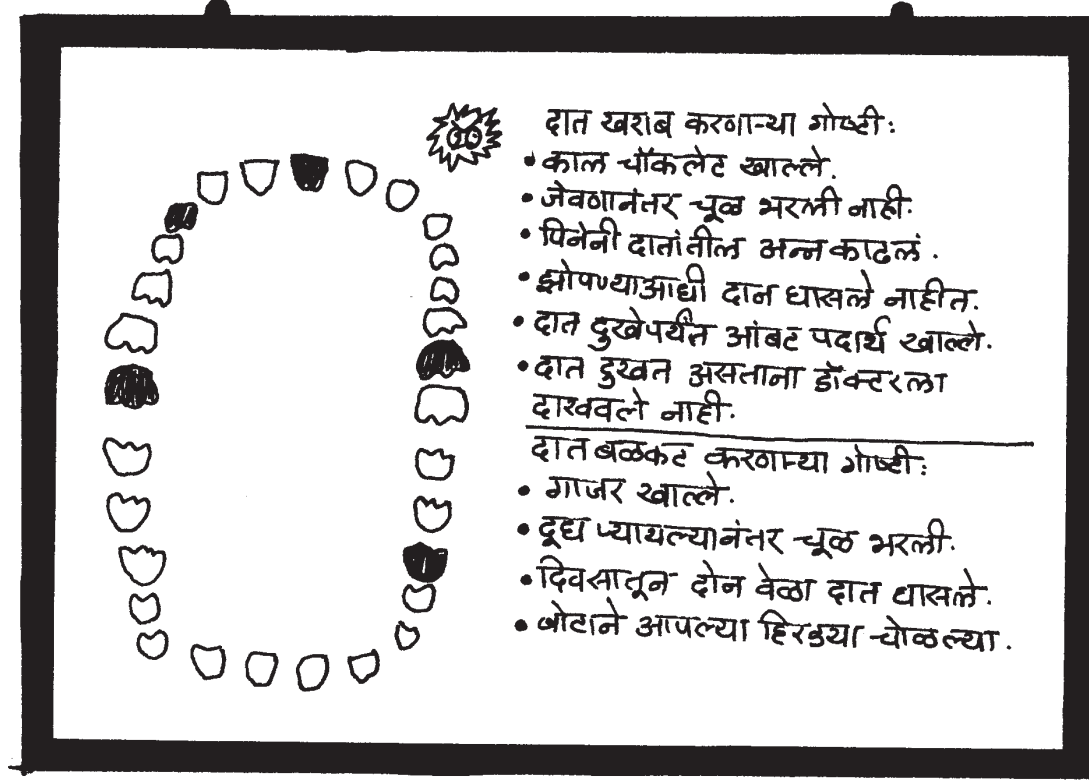 दात खराब करणाऱ्या गोष्टी:
• काल चॉकलेट खाल्ले.
• जेवणानंतर चूळ भरली नाही.
• पिनेनी दातांतील अन्न काढलं.
• झोपण्याआधी दात घासले नाहीत.
• दात दुखेपर्यंत आंबट पदार्थ खाल्ले.
• दात दुखत असताना डॉक्टरला
दाखवले नाही.
दात बळकट करणाऱ्या गोष्टी:
• गाजर खाल्ले.
• दूध प्यायल्यानंतर चूळ भरली.
• दिवसातून दोन वेळा दात घासले.
• बोटाने आपल्या हिरड्या चोळल्या.